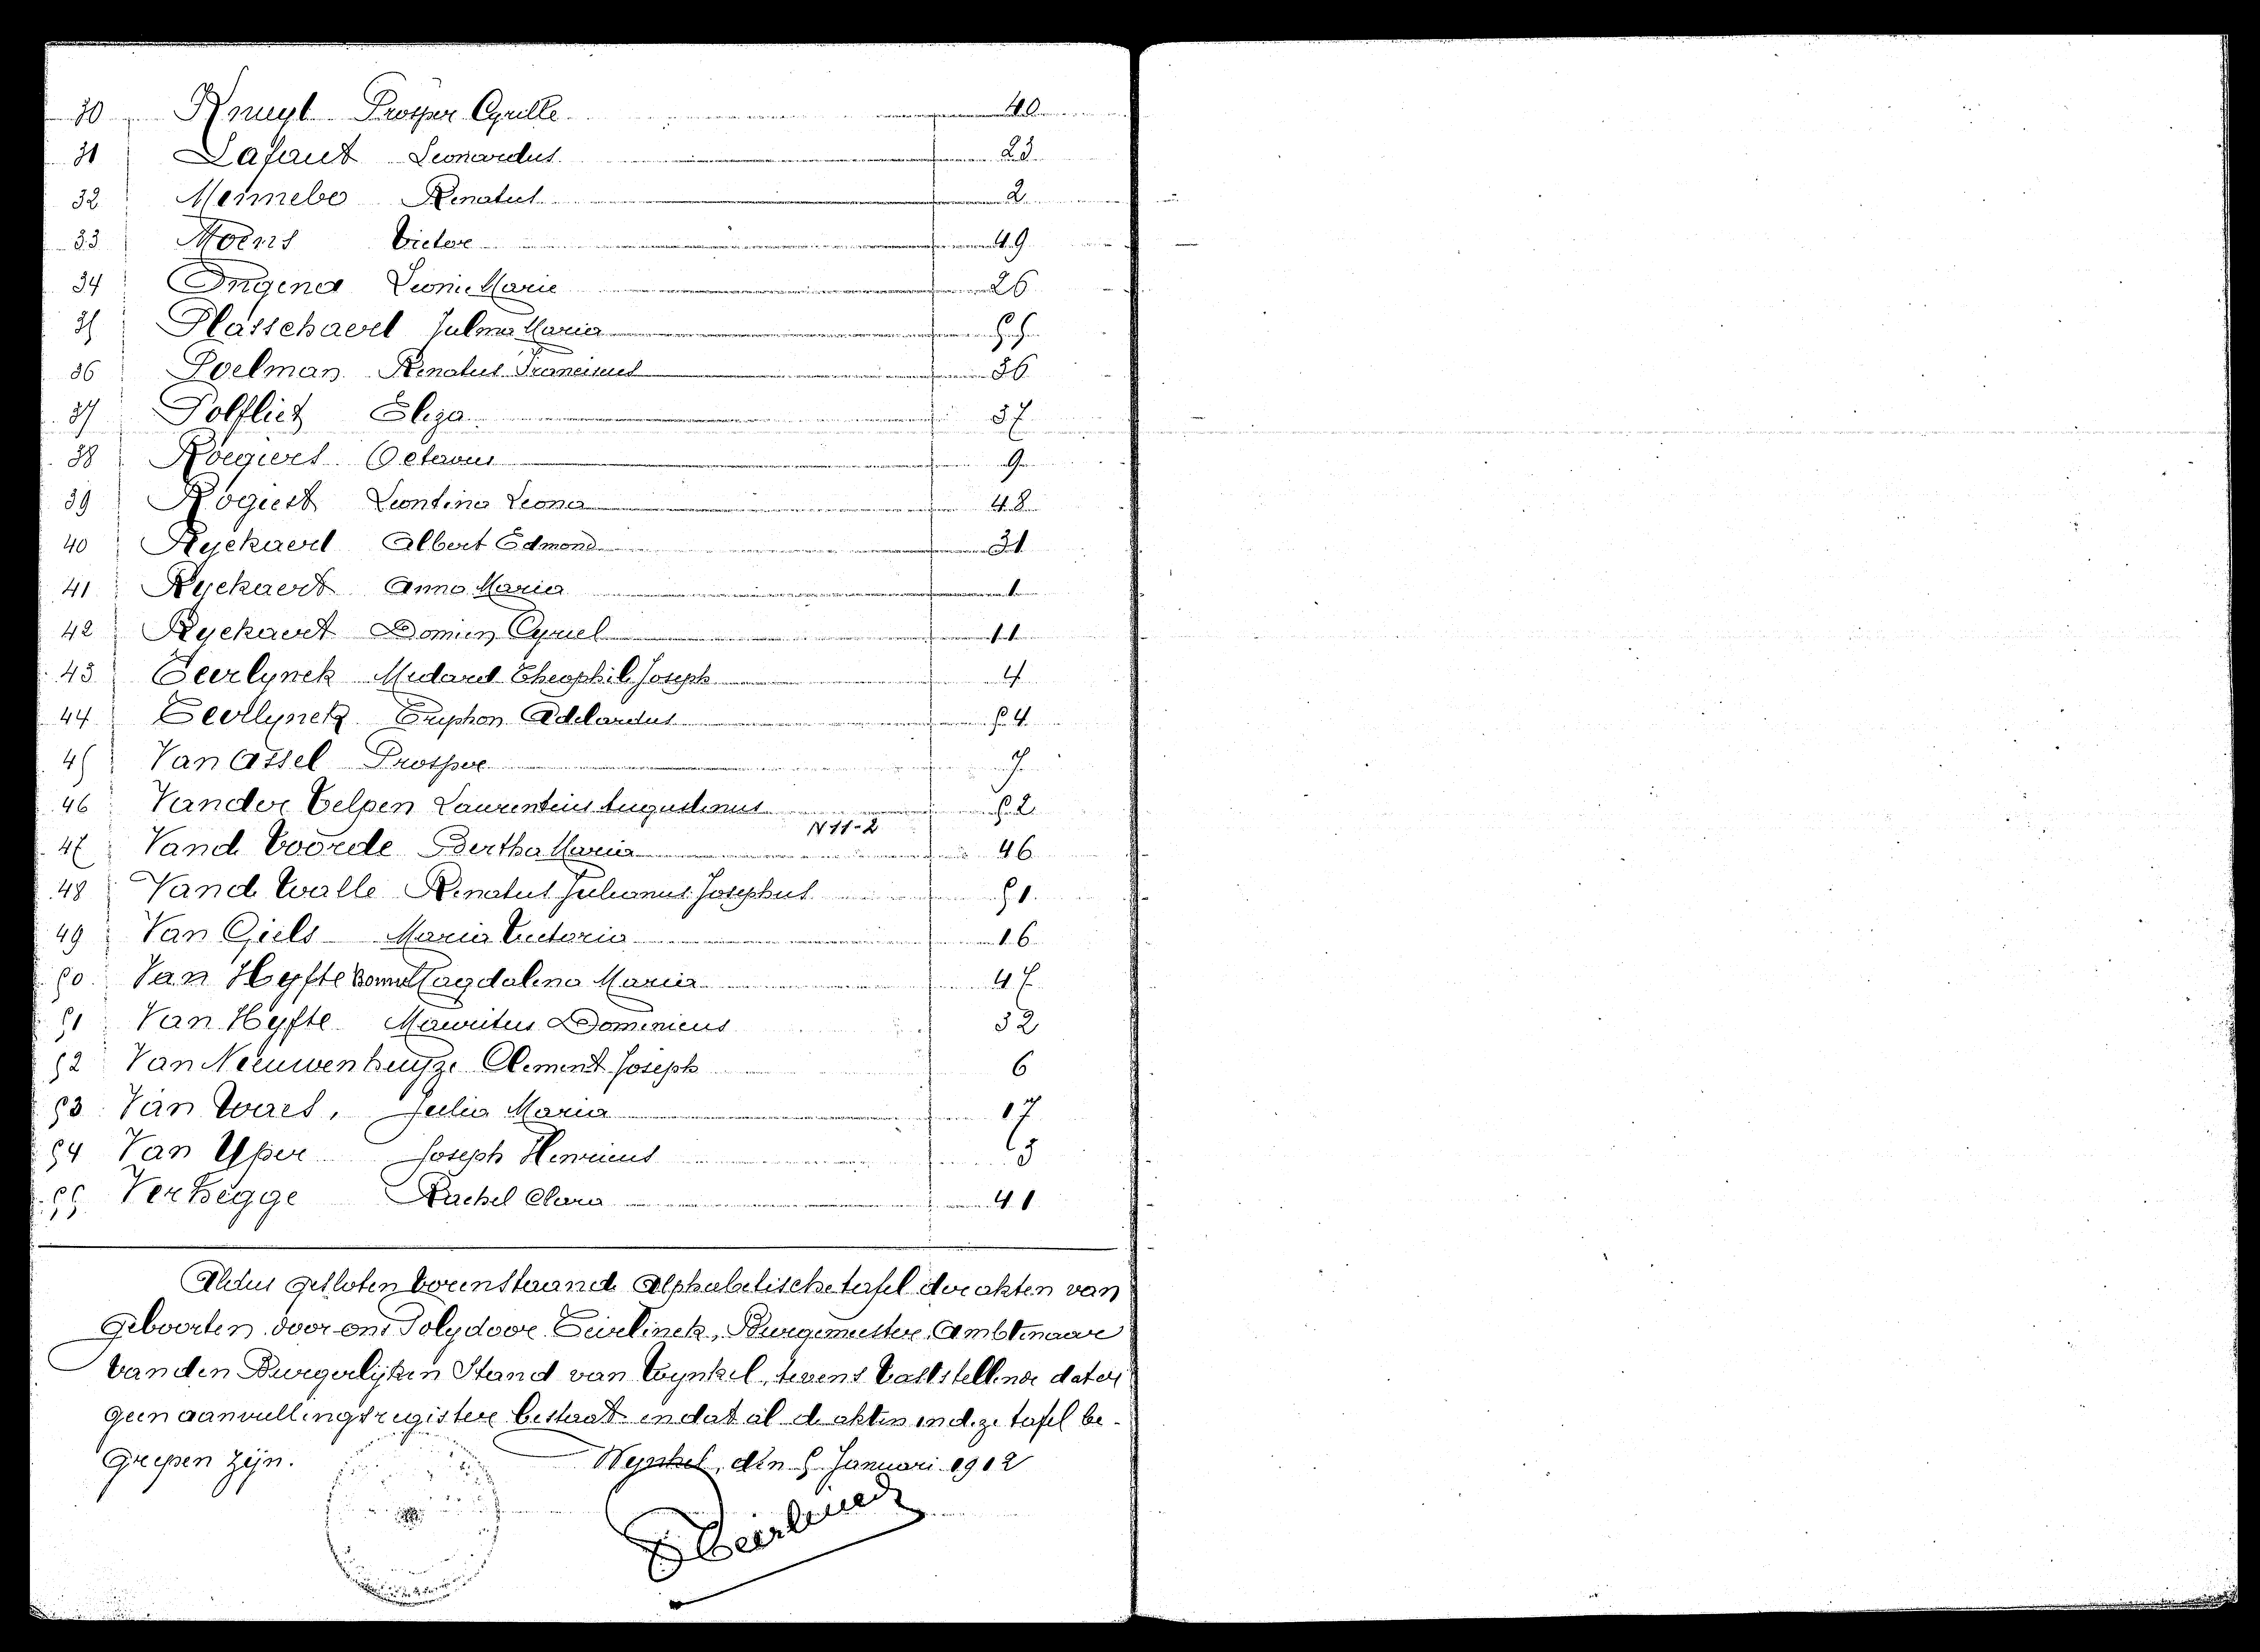 30 Knuyt Prosper Cyrille 40
31 Lafaut Leonardus 23
32 Mennebo Renatus 2
33 Moens Victor 49
34 Ongena Leonie Marie 26
35 Plasschaert Julma Maria 55
36 Poelman Renatus Francicus 36
37 Polfliet Eliza 37
38 Roegiers Octavus 9
39 Rogiest Leontina Leona 48
40 Ryckaert Albert Edmond 31
41 Ryckaert Anna Maria 1
42 Ryckaert Domien Cyriel 11
43 Teerlynck Medard Theophile Joseph 4
44 Teerlynck Tryphon Adelardus 54
45 Van Assel Prosper 7
46 Vander Velpen Laurentius Augustinus 52
N 11-2
47 Vande Voorde Bertha Maria 46
48 Vande Walle Renatus Julianus Josephus 51
49 Van Giels Maria Victoria 16
50 Van Hyfte Magdalena Maria 47
51 Van Hyfte Mauritus Dominicus 32
52 Van Nieuwenhuyze Clement Joseph 6
53 Van Waes, Julia Maria 17
54 Van Yper Joseph Henricus 3
55 Verhegge Rachel Clara 41
Aldus gesloten bovenstaande Alphabetische tafel der akten van
Geboorten door ons Polydoor Teirlinck, Burgemeester, Ambtenaar
van den Burgerlijken Stand van Wynkel, tevens vaststellende dat er
geen aanvullingsregister bestaat en dat al de akten in deze tafel be-
grepen zijn. Wynkel, den 5 Januari 1912
Teirlinck